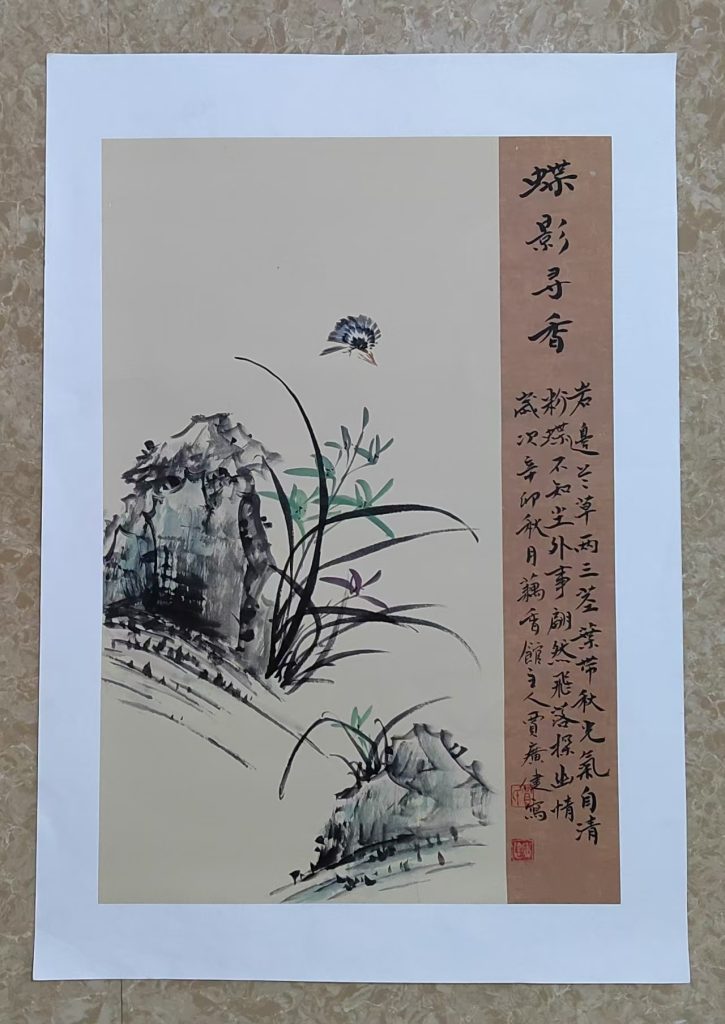 蝶影寻香
岩邊兰草两三茎葉带秋光氣自清
粉蝶不知尘外事翩然飛落探幽情
歲次辛卯秋月藕香館主人賈廣健寫